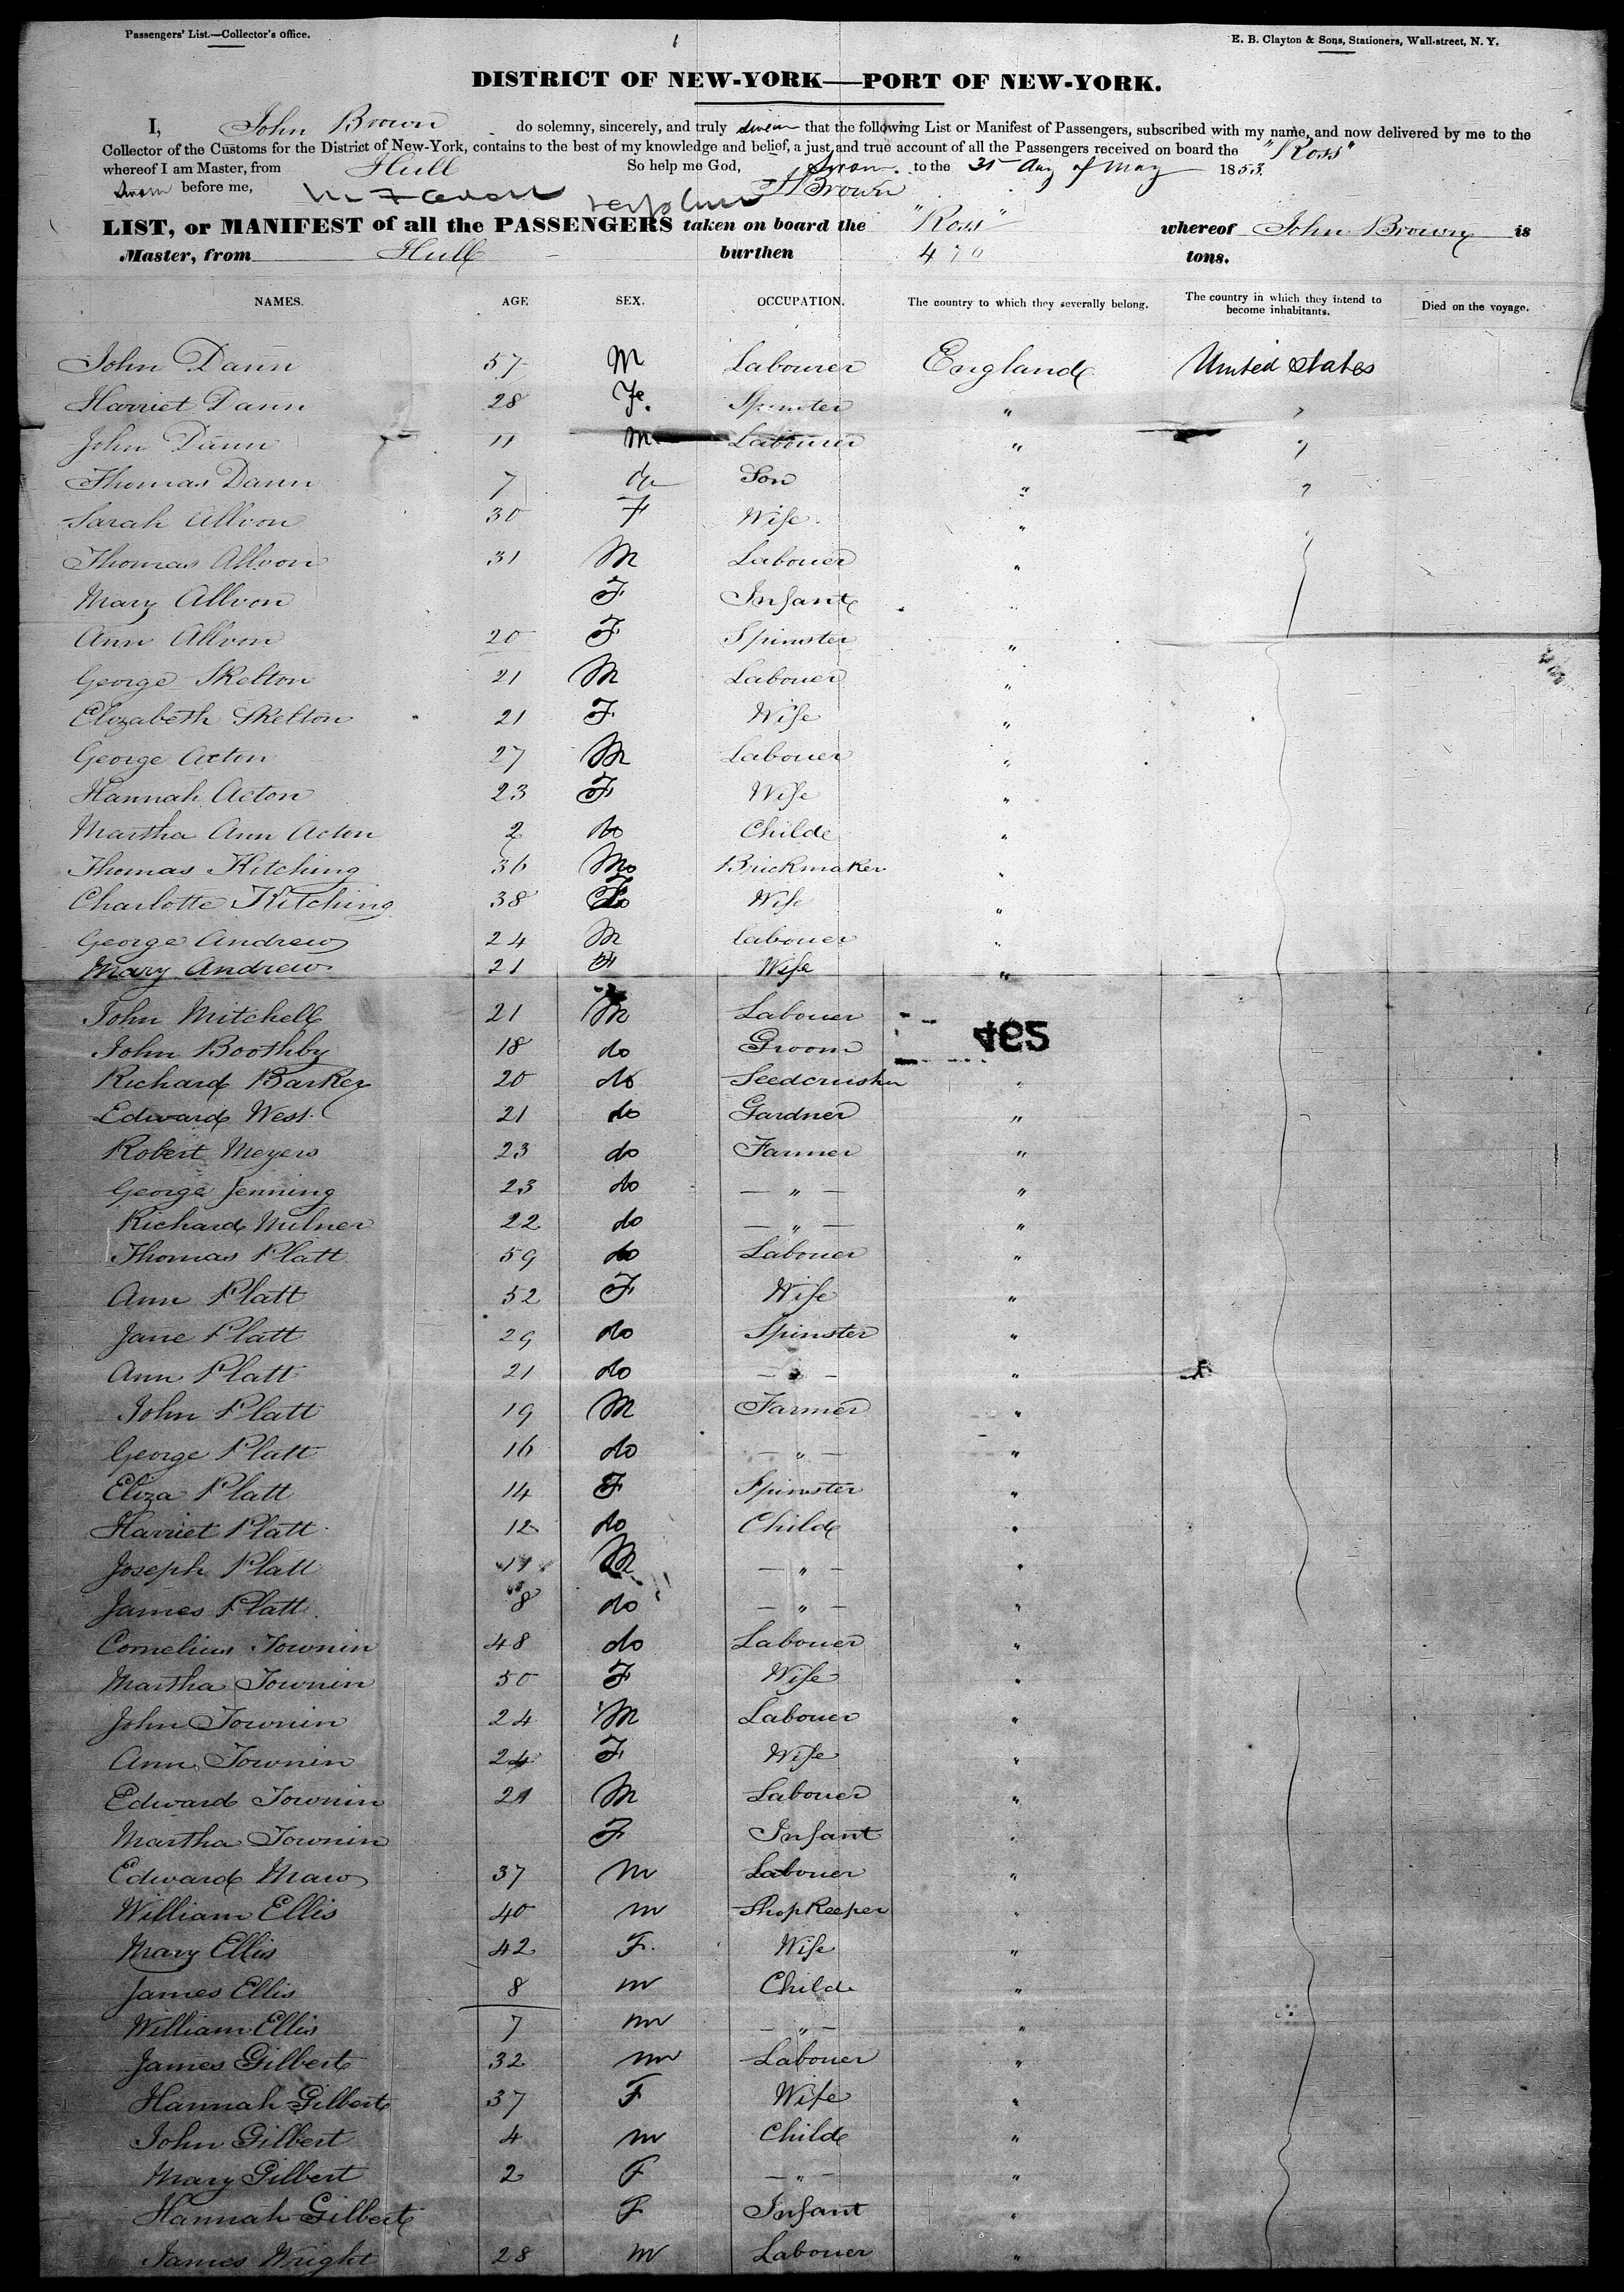 Passengers' List.—Collector's office.
1
E. B. Clayton & Sons, Stationers, Wall-street, N. Y.
DISTRICT OF NEW-YORK—PORT OF NEW-YORK.
I, John Brown do solemny, sincerely, and truly swear that the following List or Manifest of Passengers, subscribed with my name, and now delivered by me to the
Collector of the Customs for the District of New-York, contains to the best of my knowledge and belief, a just and true account of all the Passengers received on board the "Ross"
whereof I am Master, from Hull So help me God, Sworn to the 31 Day of May 1853.
Sworn before me, J Brown
LIST, or MANIFEST of all the PASSENGERS taken on board the "Ross" whereof John Brown is
Master, from Hull burthen 470 tons.
NAMES. AGE SEX. OCCUPATION. The country to which they severally belong. The country in which they intend to become inhabitants. Died on the voyage.
John Dann 57 M Labourer England United States
Harriet Dann 28 Fe. Spinster " "
John Dann 11 M Labourer " "
Thomas Dann 7 do Son " "
Sarah Allvon 30 F Wife "
Thomas Allvon 31 M Labouer "
Mary Allvon F Infant "
Ann Allvon 20 F Spinster "
George Skelton 21 M Labouer "
Elizabeth Skelton 21 F Wife "
George Acton 27 M Labouer "
Hannah Acton 23 F Wife "
Martha Ann Acton 2 do Child "
Thomas Kitching 36 Mo Brickmaker "
Charlotte Kitching 38 F Wife "
George Andrew 24 M labouer "
Mary Andrew 21 F Wife "
John Mitchell 21 M Labouer
John Boothby 18 do Groom
Richard Barker 20 do Seedcrusher "
Edward West 21 do Gardner "
Robert Meyers 23 do Farmer "
George Jenning 23 do — " — "
Richard Milner 22 do — " — "
Thomas Platt 59 do Labouer "
Ann Platt 52 F Wife "
Jane Platt 29 do Spinster "
Ann Platt 21 do — " — "
John Platt 19 M Farmer "
George Platt 16 do — " — "
Eliza Platt 14 F Spinster "
Harriet Platt 12 do Child "
Joseph Platt 11 M — " — "
James Platt 8 do — " — "
Cornelius Townin 48 do Labouer "
Martha Townin 50 F Wife "
John Townin 24 M Labouer "
Ann Townin 24 F Wife "
Edward Townin 21 M Labouer "
Martha Townin F Infant "
Edward Maw 37 M Labouer "
William Ellis 40 m Shopkeeper "
Mary Ellis 42 F. Wife "
James Ellis 8 m Child "
William Ellis 7 m — " — "
James Gilbert 32 m Labouer "
Hannah Gilbert 37 F Wife "
John Gilbert 4 m Child "
Mary Gilbert 2 F — " — "
Hannah Gilbert F Infant "
James Wright 28 m Labouer "